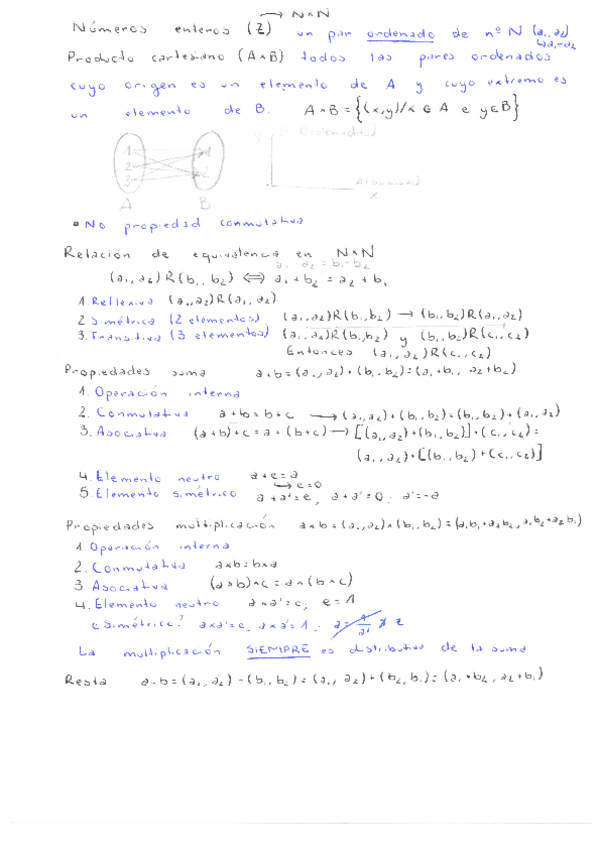 → N×N
Números enteros (Z) un par ordenado de nº N (a₁, a₂)
↳a₁-a₂
Producto cartesiano (A×B) todos las pares ordenados
cuyo origen es un elemento de A y cuyo extremo es
un elemento de B. A×B = {(x,y)/x ∈ A e y∈B}
y (Ordenadas)
1 1
2
3 2
A B
x
• No propiedad conmutativa
Relación de equivalencia en N×N
a₁-a₂ = b₁-b₂
(a₁, a₂) R (b₁, b₂) ⟺ a₁+b₂ = a₂+b₁
1. Reflexiva (a₁, a₂) R (a₁, a₂)
2. Simétrica (2 elementos) (a₁, a₂) R (b₁, b₂) → (b₁, b₂) R (a₁, a₂)
3. Transitiva (3 elementos) (a₁, a₂) R (b₁, b₂) y (b₁, b₂) R (c₁, c₂)
Entonces (a₁, a₂) R (c₁, c₂)
Propiedades suma a+b = (a₁, a₂) + (b₁, b₂) = (a₁+b₁, a₂+b₂)
1. Operación interna
2. Conmutativa a+b = b+c → (a₁, a₂) + (b₁, b₂) = (b₁, b₂) + (a₁, a₂)
3. Asociativa (a+b)+c = a+(b+c) → [(a₁, a₂) + (b₁, b₂)] + (c₁, c₂) =
(a₁, a₂) + [(b₁, b₂) + (c₁, c₂)]
4. Elemento neutro a+e = a
↳ e=0
5. Elemento simétrico a+a' = e, a+a' = 0; a' = -a
Propiedades multiplicación a×b = (a₁, a₂) × (b₁, b₂) = (a₁b₁+a₂b₂, a₁b₂+a₂b₁)
1. Operación interna
2. Conmutativa a×b = b×a
3. Asociativa (a×b)×c = a×(b×c)
4. Elemento neutro a×a' = e, e=1
¿Simétrico? a×a' = e, a×a' = 1; a = 1/a' ∄ Z
La multiplicación SIEMPRE es distributiva de la suma
Resta a-b = (a₁, a₂) - (b₁, b₂) = (a₁, a₂) + (b₂, b₁) = (a₁+b₂, a₂+b₁)